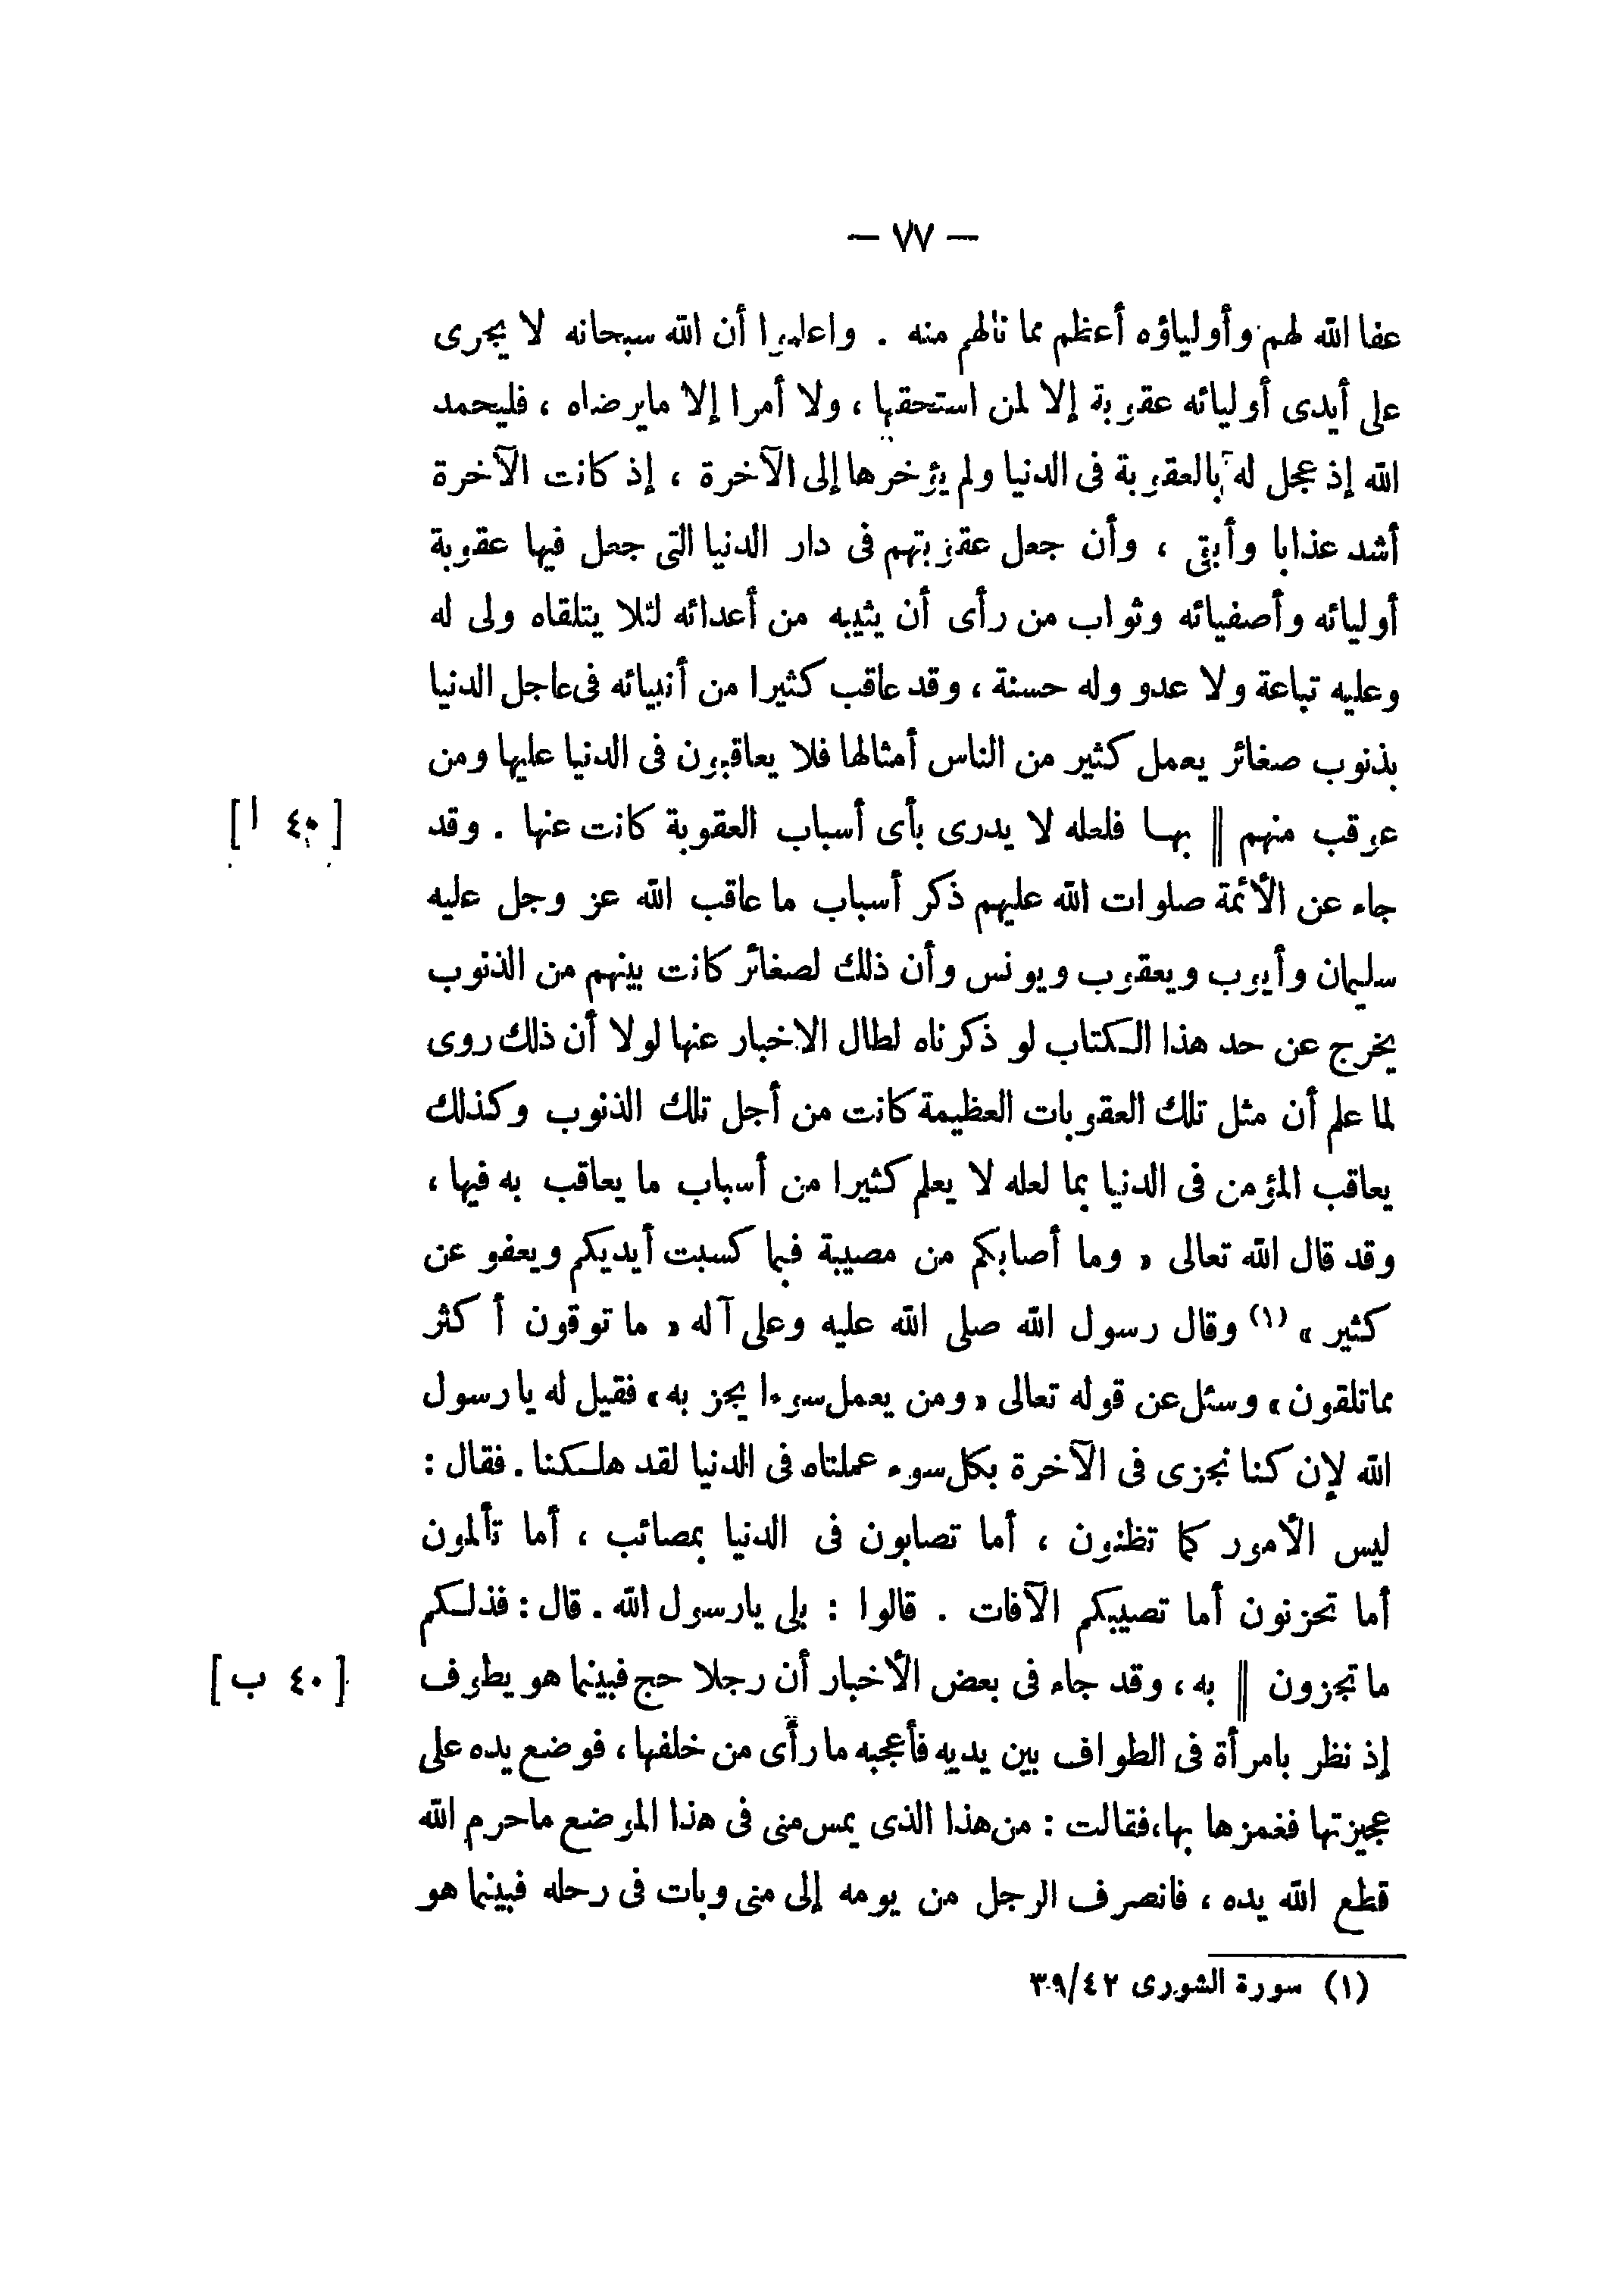 — ٧٧ —
عفا الله لهم وأولياؤه أعظم مما نالهم منه . واعلموا أن الله سبحانه لا يجرى
على أيدى أوليائه عقوبة إلا لمن استحقها ، ولا أمرا إلا مايرضاه ، فليحمد
الله إذ عجل له بالعقوبة فى الدنيا ولم يؤخرها إلى الآخرة ، إذ كانت الآخرة
أشد عذابا وأبقى ، وأن جعل عقوبتهم فى دار الدنيا التى جعل فيها عقوبة
أوليائه وأصفيائه وثواب من رأى أن يثيبه من أعدائه لئلا يتلقاه ولى له
وعليه تباعة ولا عدو وله حسنة ، وقد عاقب كثيرا من أنبيائه فى عاجل الدنيا
بذنوب صغائر يعمل كثير من الناس أمثالها فلا يعاقبون فى الدنيا عليها ومن
عوقب منهم || بها فلعله لا يدرى بأى أسباب العقوبة كانت عنها . وقد [ ٤٠ ا ]
جاء عن الأئمة صلوات الله عليهم ذكر أسباب ما عاقب الله عز وجل عليه
سليمان وأيوب ويعقوب ويونس وأن ذلك لصغائر كانت بينهم من الذنوب
يخرج عن حد هذا الكتاب لو ذكرناه لطال الاخبار عنها لولا أن ذلك روى
لما علم أن مثل تلك العقوبات العظيمة كانت من أجل تلك الذنوب وكذلك
يعاقب المؤمن فى الدنيا بما لعله لا يعلم كثيرا من أسباب ما يعاقب به فيها ،
وقد قال الله تعالى « وما أصابكم من مصيبة فبما كسبت أيديكم ويعفو عن
كثير » (١) وقال رسول الله صلى الله عليه وعلى آله « ما توقون أكثر
مماتلقون » وسئل عن قوله تعالى « ومن يعمل سوءا يجز به » فقيل له يا رسول
الله لإن كنا نجزى فى الآخرة بكل سوء عملناه فى الدنيا لقد هلكنا . فقال :
ليس الأمور كما تظنون ، أما تصابون فى الدنيا بمصائب ، أما تألمون
أما تحزنون أما تصيبكم الآفات . قالوا : بلى يارسول الله . قال : فذلكم
ما تجزون || به ، وقد جاء فى بعض الأخبار أن رجلا حج فبينما هو يطوف [ ٤٠ ب ]
إذ نظر بامرأة فى الطواف بين يديه فأعجبه ما رأى من خلفها ، فوضع يده على
عجيزتها فغمزها بها، فقالت : من هذا الذى يمس منى فى هذا الموضع ماحرم الله
قطع الله يده ، فانصرف الرجل من يومه إلى منى وبات فى رحله فبينما هو
(١) سورة الشورى ٣٩/٤٢